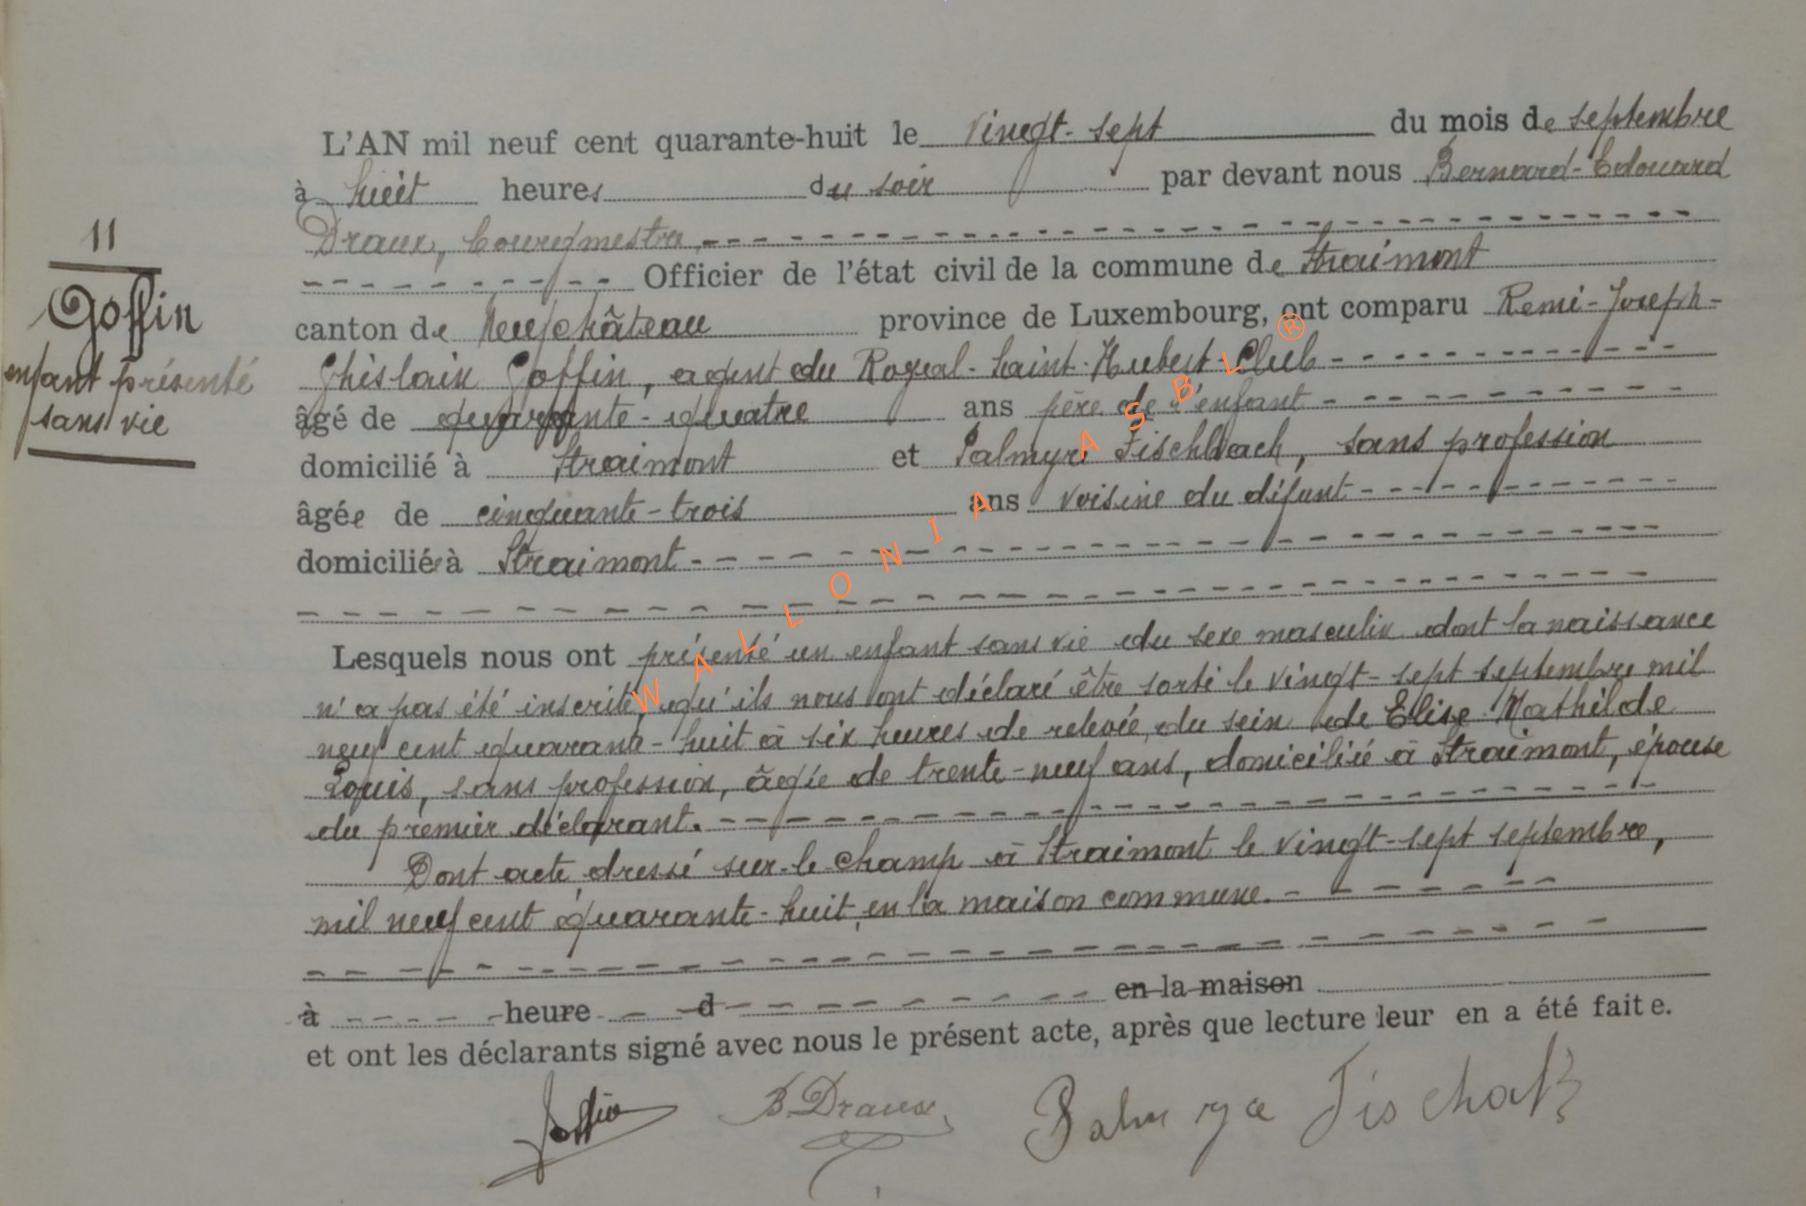 L'AN mil neuf cent quarante-huit le vingt-sept du mois de septembre
à huit heures du soir par devant nous Bernard-Edouard
Draux, bourgmestre
Officier de l'état civil de la commune de Straimont
11
Goffin
enfant présenté
sans vie
canton de Neufchâteau province de Luxembourg, ont comparu Remi-Joseph-
Ghislain Goffin, agent du Royal-Saint-Hubert-Club
âgé de quarante-quatre ans père de l'enfant
domicilié à Straimont et Palmyre Fischbach, sans profession
âgée de cinquante-trois ans voisine du défunt
domiciliée à Straimont
Lesquels nous ont présenté un enfant sans vie du sexe masculin dont la naissance
n'a pas été inscrite, qu'ils nous ont déclaré être sorti le vingt-sept septembre mil
neuf cent quarante-huit à six heures de relevée, du sein de Elise Mathilde
Louis, sans profession, âgée de trente-neuf ans, domiciliée à Straimont, épouse
du premier déclarant.
Dont acte, dressé sur-le-champ à Straimont le vingt-sept septembre,
mil neuf cent quarante-huit, en la maison commune.
à heure d en la maison
et ont les déclarants signé avec nous le présent acte, après que lecture leur en a été faite.
Goffin B. Draux Palmyre
WALLONIA ASBL ®